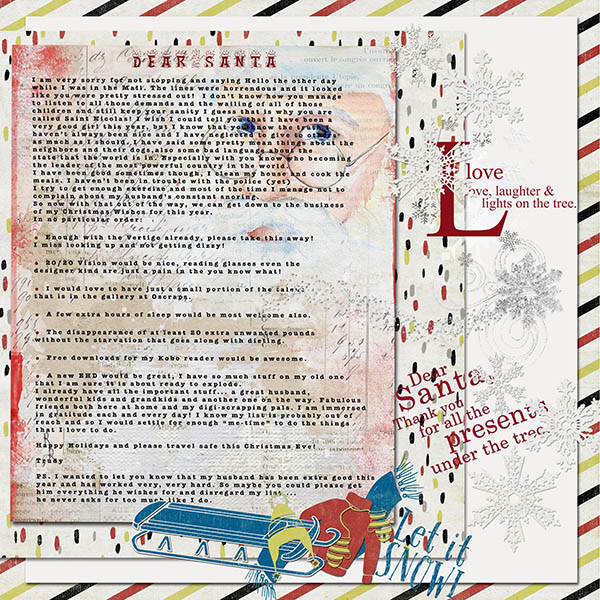 DEAR SANTA
I am very sorry for not stopping and saying Hello the other day
while I was in the Mall. The lines were horrendous and it looked
like you were pretty stressed out! I don't know how you manage
to listen to all those demands and the smiling of all of those
children and still keep your sanity I guess that is why you are
called Saint Nicolas. I wish I could tell you that I have been a
very good girl this year, but I know that you know I
haven't always been nice and I have neglected to give to others
as much as I should, I have said some pretty nasty things about the
neighbors and their dogs, also some bad language about the
state that the world is in. Especially with you know who becoming
the leader of the most powerful country in the world.
I have been good sometimes though, I clean my house and cook the
meals, I haven't been in trouble with the police (yet)
I try to get enough exercise and most of the time I manage not to
complain about my husband's constant snoring.
So now with that out of the way, we can get down to the business
of my Christmas Wishes for this year.
In no particular order:
Enough with the Vertigo already, please take this away!
I miss looking up and not getting dizzy!
20/20 Vision would be nice, reading glasses even the
designer kind are just a pain in the you know what!
I would love to have just a small portion of the talent
that is in the gallery at Oscraps.
A few extra hours of sleep would be most welcome also.
The disappearance of at least 20 extra unwanted pounds
without the starvation that goes along with dieting.
Free downloads for my Kobo reader would be awesome.
A new EHD would be great, I have so much stuff on my old one
that I am sure it is about ready to explode.
I already have all the important stuff.... a great husband,
wonderful kids and grandkids and another one on the way. Fabulous
friends both here at home and my digi-scrapping pals. I am immersed
in gratitude each and every day! I know my list is probably out of
reach and so I would settle for enough "me-time" to do the things
that I love to do.
Happy Holidays and please travel safe this Christmas Eve!
Trudy
PS. I wanted to let you know that my husband has been extra good this
year and has worked very, very hard. So maybe you could please get
him everything he wishes for and disregard my list....
he never asks for too much like I do.
L
love
love, laughter &
lights on the tree.
Dear
Santa,
Thank you
for all the
presents
under the tree
Let it
SNOW!